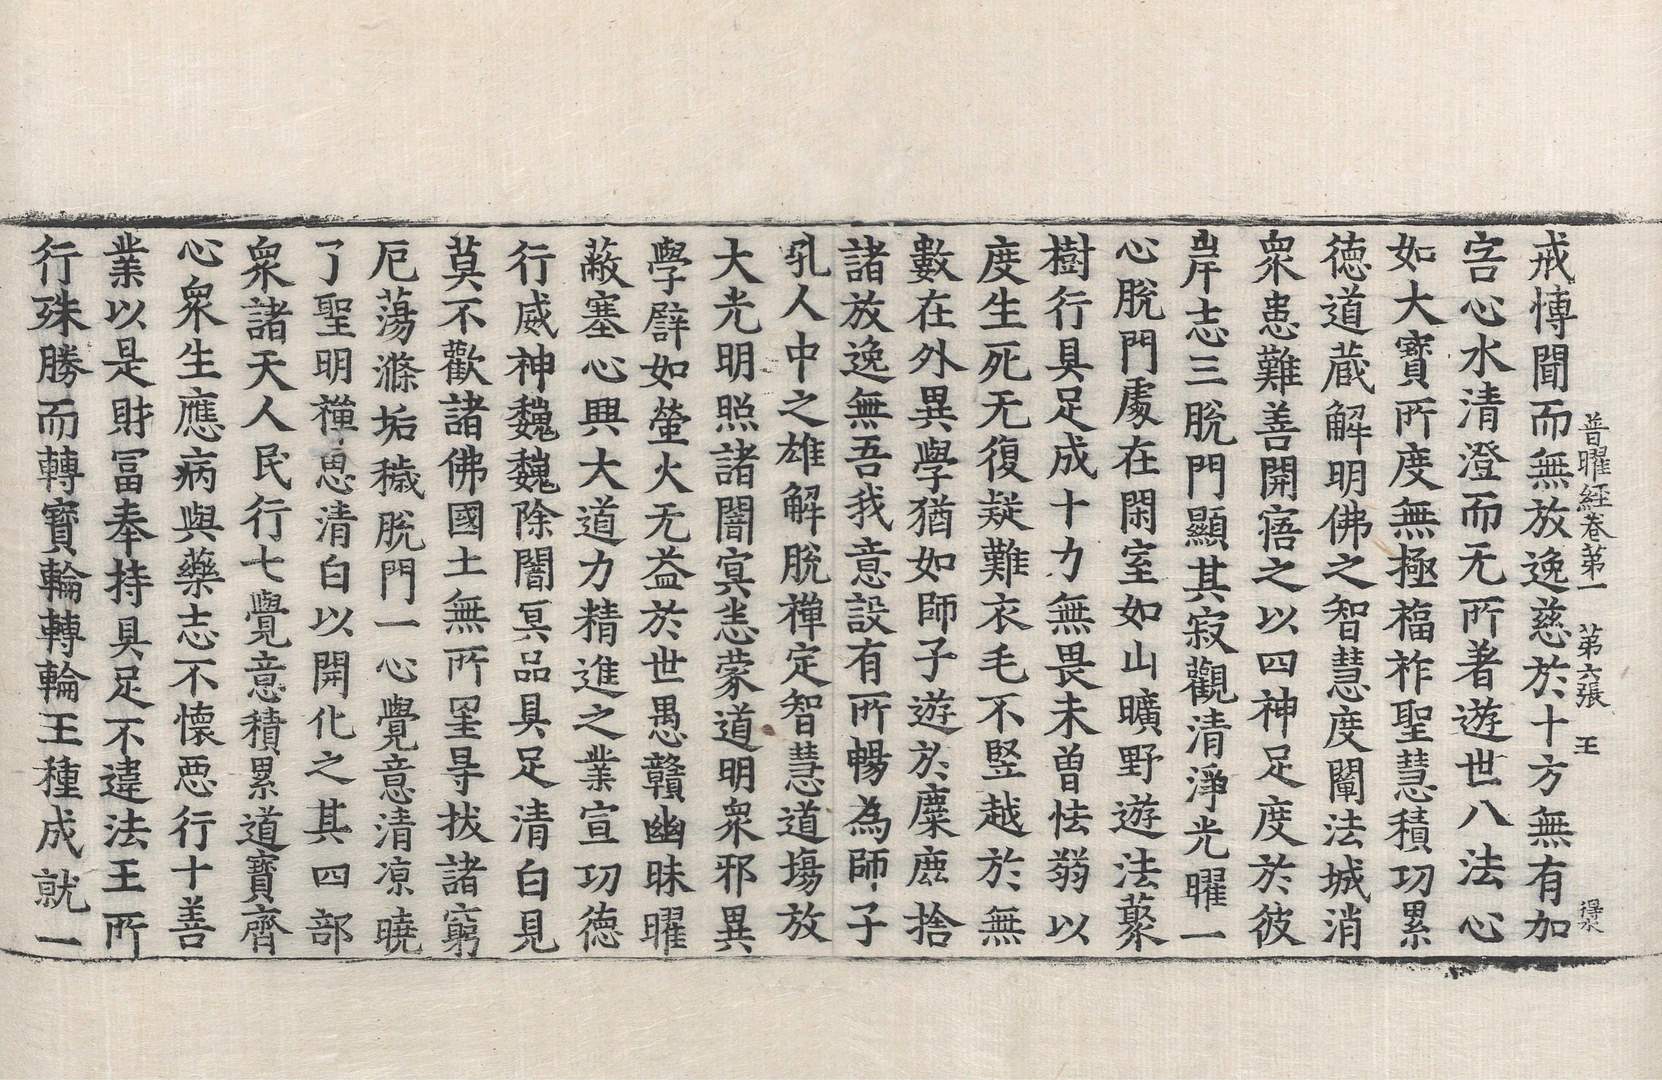 普曜經卷第一　第六張　王　得水
戒博聞而無放逸慈於十方無有加
害心水清澄而无所著遊世八法心
如大寶所度無極福祚聖慧積功累
德道蔵解明佛之智慧度闡法城消
衆患難善開寤之以四神足度於彼
岸志三脫門顯其寂觀清淨光曜一
心脫門處在閑室如山曠野遊法藂
樹行具足成十力無畏未曾怯弱以
度生死无復疑難衣毛不竪越於無
數在外異學猶如師子遊於麋鹿捨
諸放逸無吾我意設有所暢為師子
吼人中之雄解脫禪定智慧道塲放
大光明照諸闇冥恙蒙道明衆邪異
學譬如螢火无益於世愚贛幽昧曜
蔽塞心興大道力精進之業宣功德
行威神巍巍除闇冥品具足清白見
莫不歡諸佛國土無所罣㝵拔諸窮
厄蕩滌垢穢脫門一心覺意清凉曉
了聖明禪思清白以開化之其四部
衆諸天人民行七覺意積累道寶齊
心衆生應病與藥志不懷惡行十善
業以是財冨奉持具足不違法王所
行殊勝而轉寳輪轉輪王種成就一